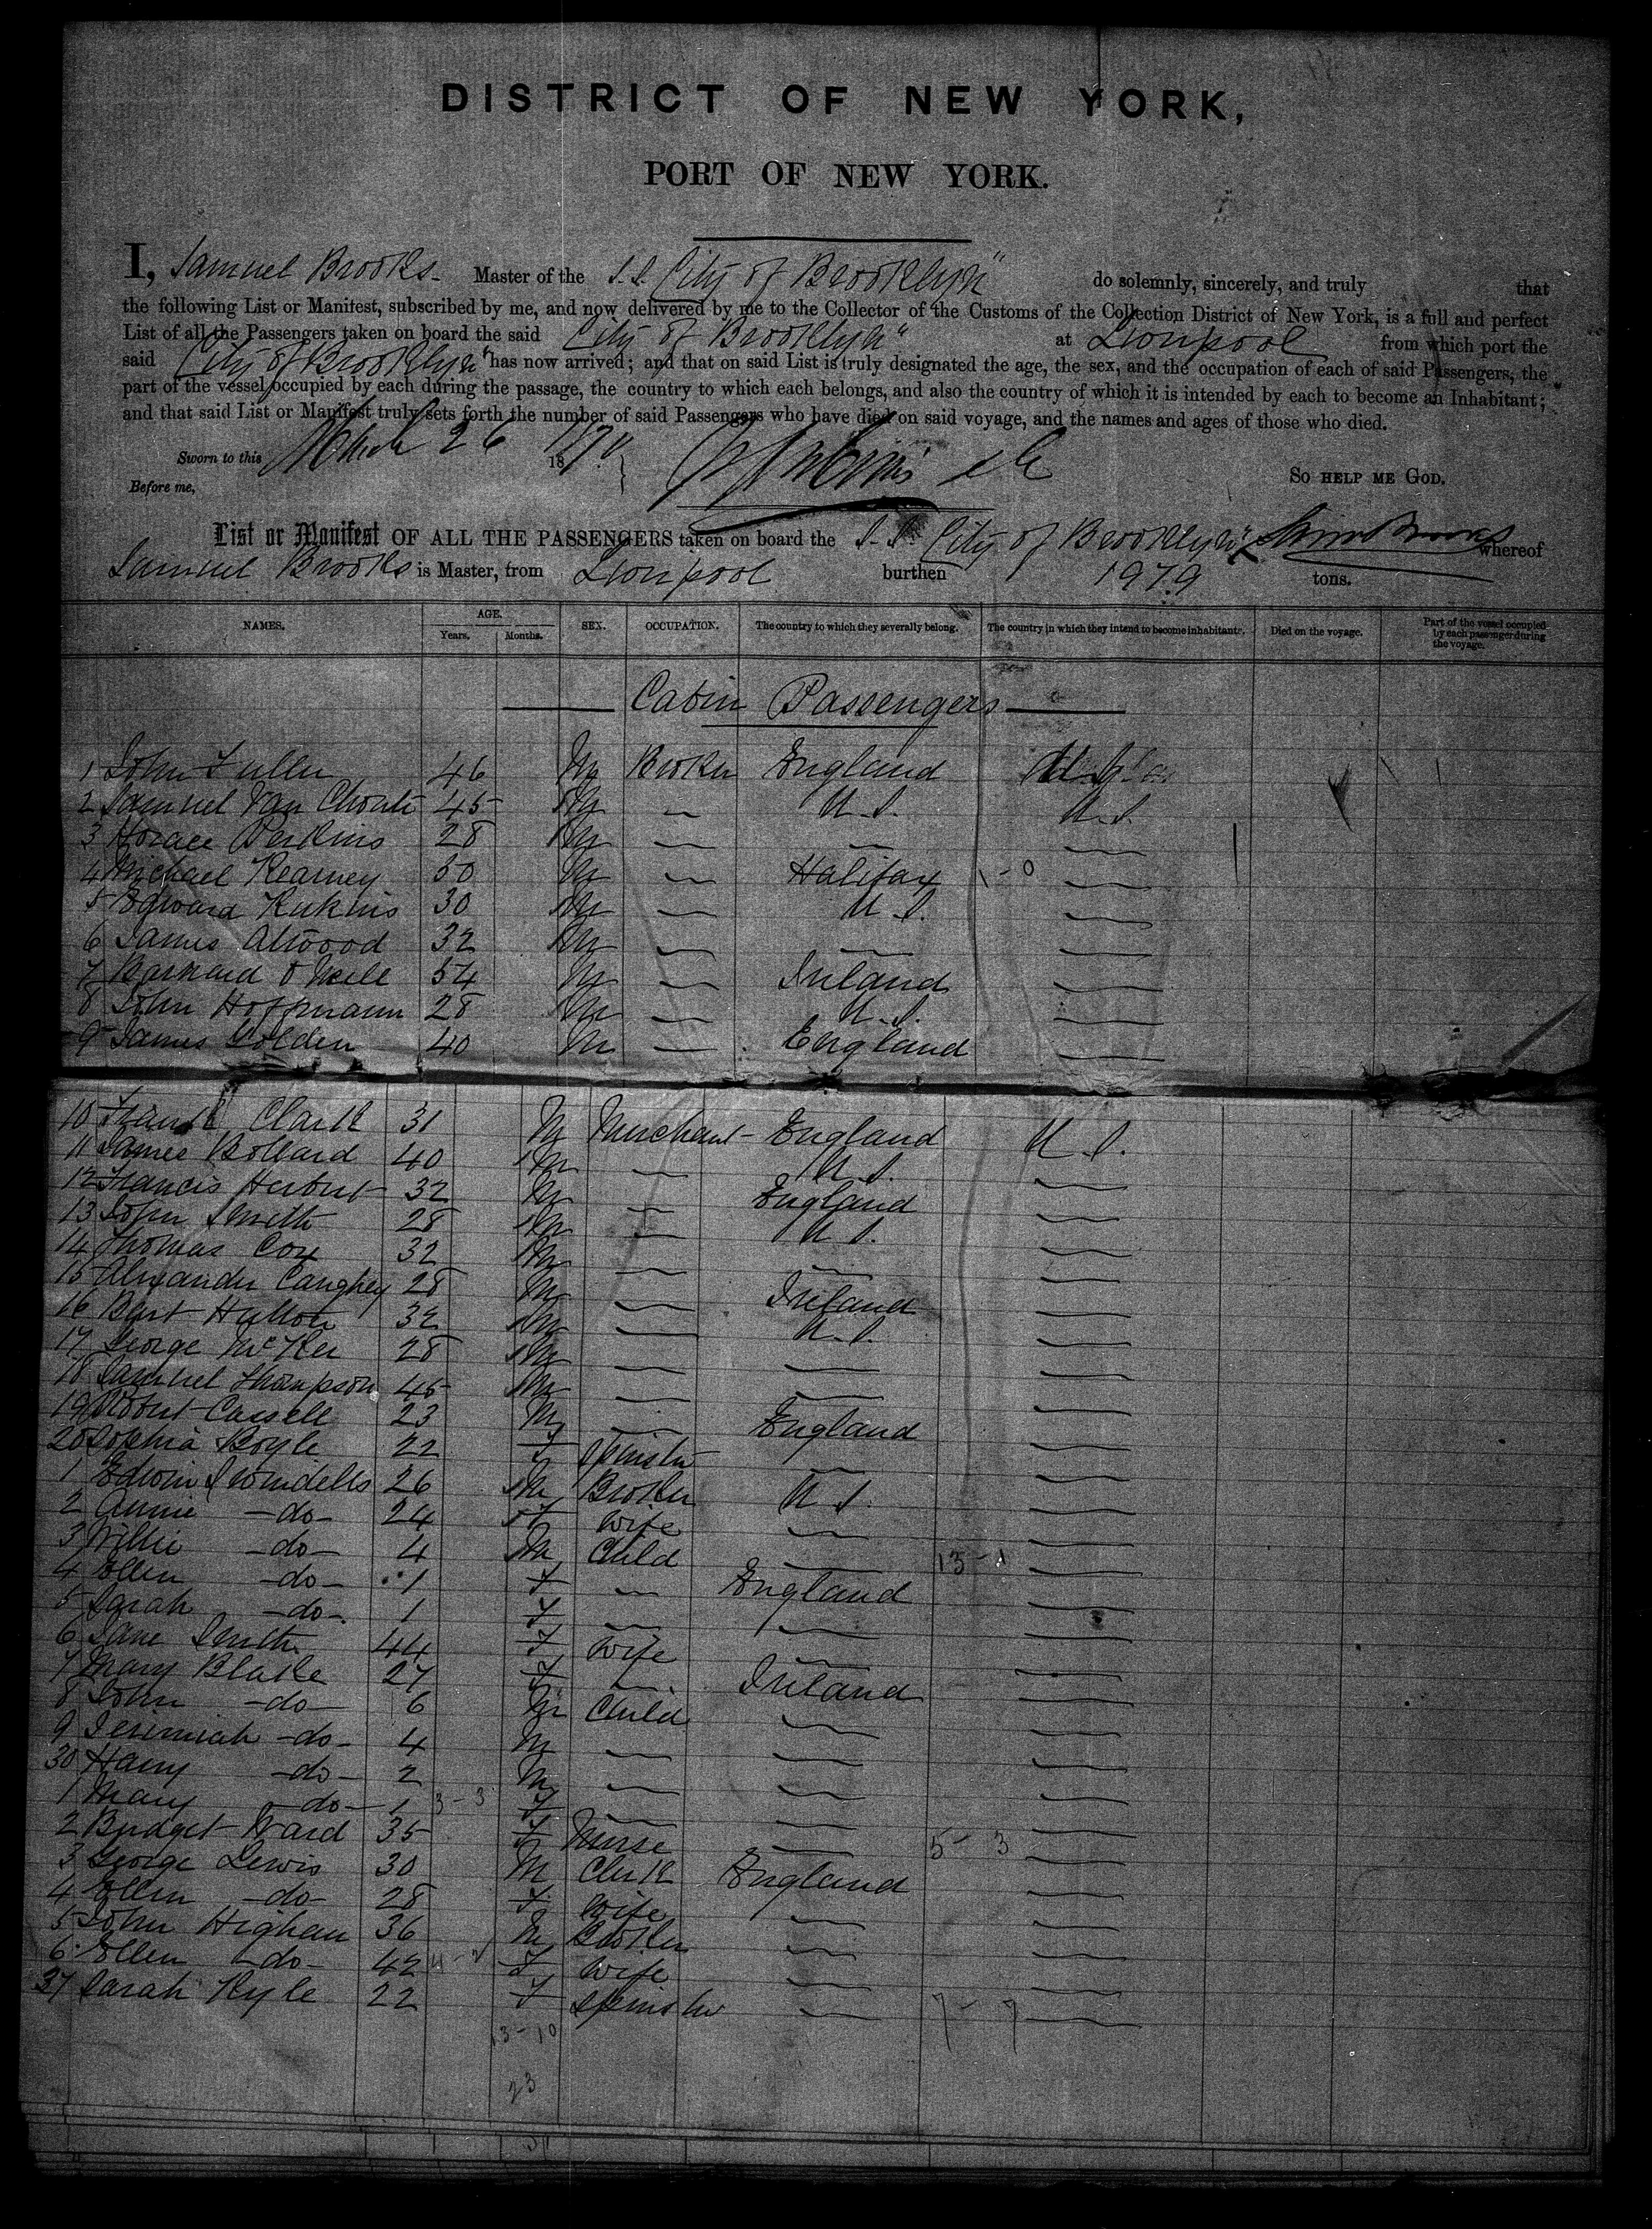 DISTRICT OF NEW YORK,
PORT OF NEW YORK.
I, Samuel Brooks Master of the S.S. City of Brooklyn" do solemnly, sincerely, and truly that
the following List or Manifest, subscribed by me, and now delivered by me to the Collector of the Customs of the Collection District of New York, is a full and perfect
List of all the Passengers taken on board the said City of Brooklyn" at Liverpool from which port the
said City of Brooklyn" has now arrived; and that on said List is truly designated the age, the sex, and the occupation of each of said Passengers, the
part of the vessel occupied by each during the passage, the country to which each belongs, and also the country of which it is intended by each to become an Inhabitant;
and that said List or Manifest truly sets forth the number of said Passengers who have died on said voyage, and the names and ages of those who died.
Sworn to this March 26 1870
Before me, So HELP ME GOD.
List or Manifest OF ALL THE PASSENGERS taken on board the S.S. City of Brooklyn" whereof
Samuel Brooks is Master, from Liverpool burthen 1979 tons.
NAMES. AGE. Years. Months. SEX. OCCUPATION. The country to which they severally belong. The country in which they intend to become inhabitants. Died on the voyage. Part of the vessel occupied by each passenger during the voyage.
Cabin Passengers
1 John Fuller 46 M Broker England U.S.
2 Samuel Van 45 M — U.S. U.S.
3 Horace Perkins 28 M — — —
4 Michael Kearney 50 M — Halifax 1-0 —
5 Edward 30 M — U.S. —
6 James Atwood 32 M — — —
7 Barnard O Neill 54 M — Ireland —
8 John Hoffmann 28 M — U.S. —
9 James Golden 40 M — England —
10 Frank Clark 31 M Merchant England U.S.
11 James Bollard 40 M — U.S. —
12 Francis Herbert 32 M — England —
13 John Smith 28 M — U.S. —
14 Thomas Cox 32 M — — —
15 Alexander Caughey 28 M — Ireland —
16 Bart Hutton 32 M — U.S. —
17 George McKee 28 M — — —
18 Samuel Thompson 45 M — — —
19 Robert Cassell 23 M — England —
20 Sophia Boyle 22 F Spinster — —
1 Edwin Swindells 26 M Broker U.S. —
2 Annie -do- 24 F Wife — —
3 Willie -do- 4 M Child — 13-1 —
4 Ellen -do- 1 F — England —
5 Sarah -do- 1 F — — —
6 Jane Smith 44 F Wife — —
7 Mary Blake 27 F — Ireland —
8 John -do- 6 M Child — —
9 Jerimiah -do- 4 M — — —
30 Harry -do- 2 M — — —
1 Mary -do- 1 3-3 F — — —
2 Bridget Ward 35 F Nurse — 5-3 —
3 George Lewis 30 M Clerk England —
4 Ellen -do- 28 F Wife — —
5 John Higham 36 M Broker — —
6 Ellen -do- 42 F Wife — —
37 Sarah Kyle 22 F Spinster — 7-7 —
13-10
23